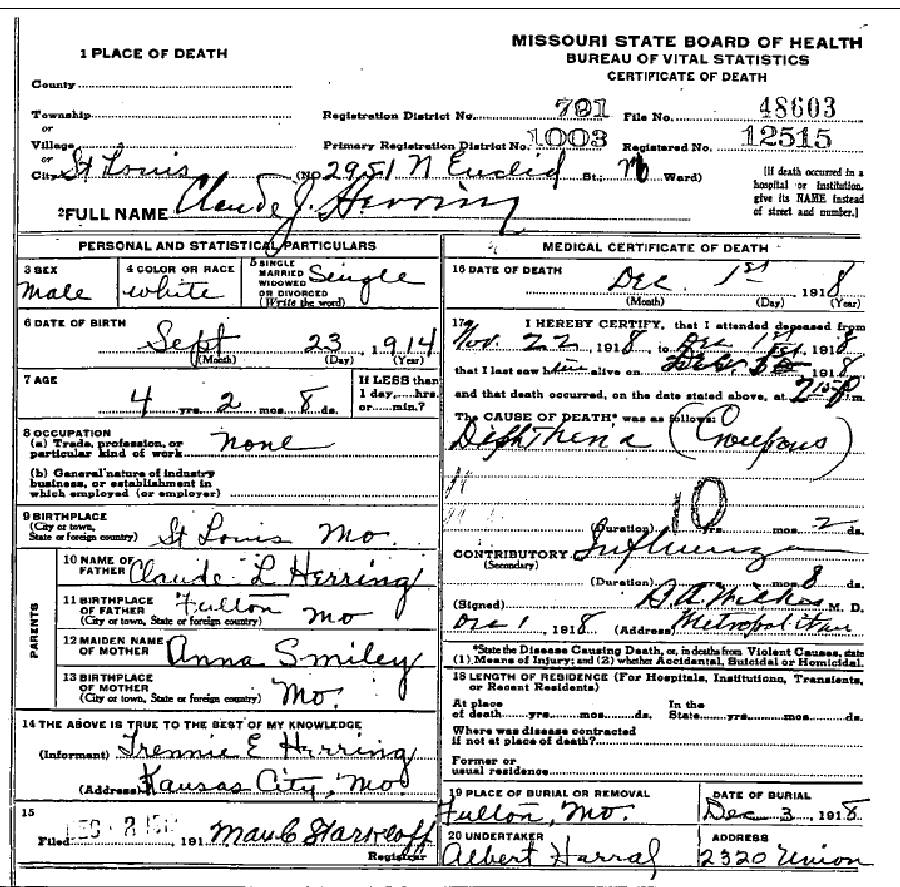 MISSOURI STATE BOARD OF HEALTH
BUREAU OF VITAL STATISTICS
CERTIFICATE OF DEATH
1 PLACE OF DEATH
County
Township
or
Village
or
City St Louis
Registration District No. 791
File No. 48603
Primary Registration District No. 1003
Registered No. 12515
(NO 2951 N Euclid St.; Ward)
[If death occurred in a
hospital or institution,
give its NAME instead
of street and number.]
2 FULL NAME Claude J. Herring
PERSONAL AND STATISTICAL PARTICULARS
3 SEX
Male
4 COLOR OR RACE
White
5 SINGLE
MARRIED
WIDOWED
OR DIVORCED
(Write the word)
Single
6 DATE OF BIRTH
Sept 23, 1914
(Month) (Day) (Year)
7 AGE
4 yrs. 2 mos. 8 ds.
If LESS than
1 day, hrs.
or min.?
8 OCCUPATION
(a) Trade, profession, or
particular kind of work none
(b) General nature of industry
business, or establishment in
which employed (or employer)
9 BIRTHPLACE
(City or town,
State or foreign country)
St Louis Mo.
PARENTS
10 NAME OF
FATHER Claude L Herring
11 BIRTHPLACE
OF FATHER
(City or town, State or foreign country)
Fulton Mo
12 MAIDEN NAME
OF MOTHER Anna Smiley
13 BIRTHPLACE
OF MOTHER
(City or town, State or foreign country)
Mo.
14 THE ABOVE IS TRUE TO THE BEST OF MY KNOWLEDGE
(Informant) E Herring
(Address) Kansas City, Mo
15
Filed DEC 191 Max C Starkloff
Registrar
MEDICAL CERTIFICATE OF DEATH
16 DATE OF DEATH
Dec. 1st, 1918
(Month) (Day) (Year)
17 I HEREBY CERTIFY, that I attended deceased from
Nov. 22, 1918, to Dec 1st, 1918
that I last saw him alive on 1918
and that death occurred, on the date stated above, at m.
The CAUSE OF DEATH* was as follows:
Diphtheria (Croupous)
10
(Duration) yrs. mos. 2 ds.
CONTRIBUTORY Influenza
(Secondary)
(Duration) yrs. mos. 8 ds.
(Signed) M. D.
Dec 1, 1918 (Address) Metropolitan
*State the Disease Causing Death, or, in deaths from Violent Causes, state
(1) Means of Injury; and (2) whether Accidental, Suicidal or Homicidal.
18 LENGTH OF RESIDENCE (For Hospitals, Institutions, Transients,
or Recent Residents)
At place
of death yrs. mos. ds.
In the
State yrs. mos. ds.
Where was disease contracted
if not at place of death?
Former or
usual residence
19 PLACE OF BURIAL OR REMOVAL
Fulton, Mo.
DATE OF BURIAL
Dec 3, 1918
20 UNDERTAKER
Albert Harral
ADDRESS
2320 Union